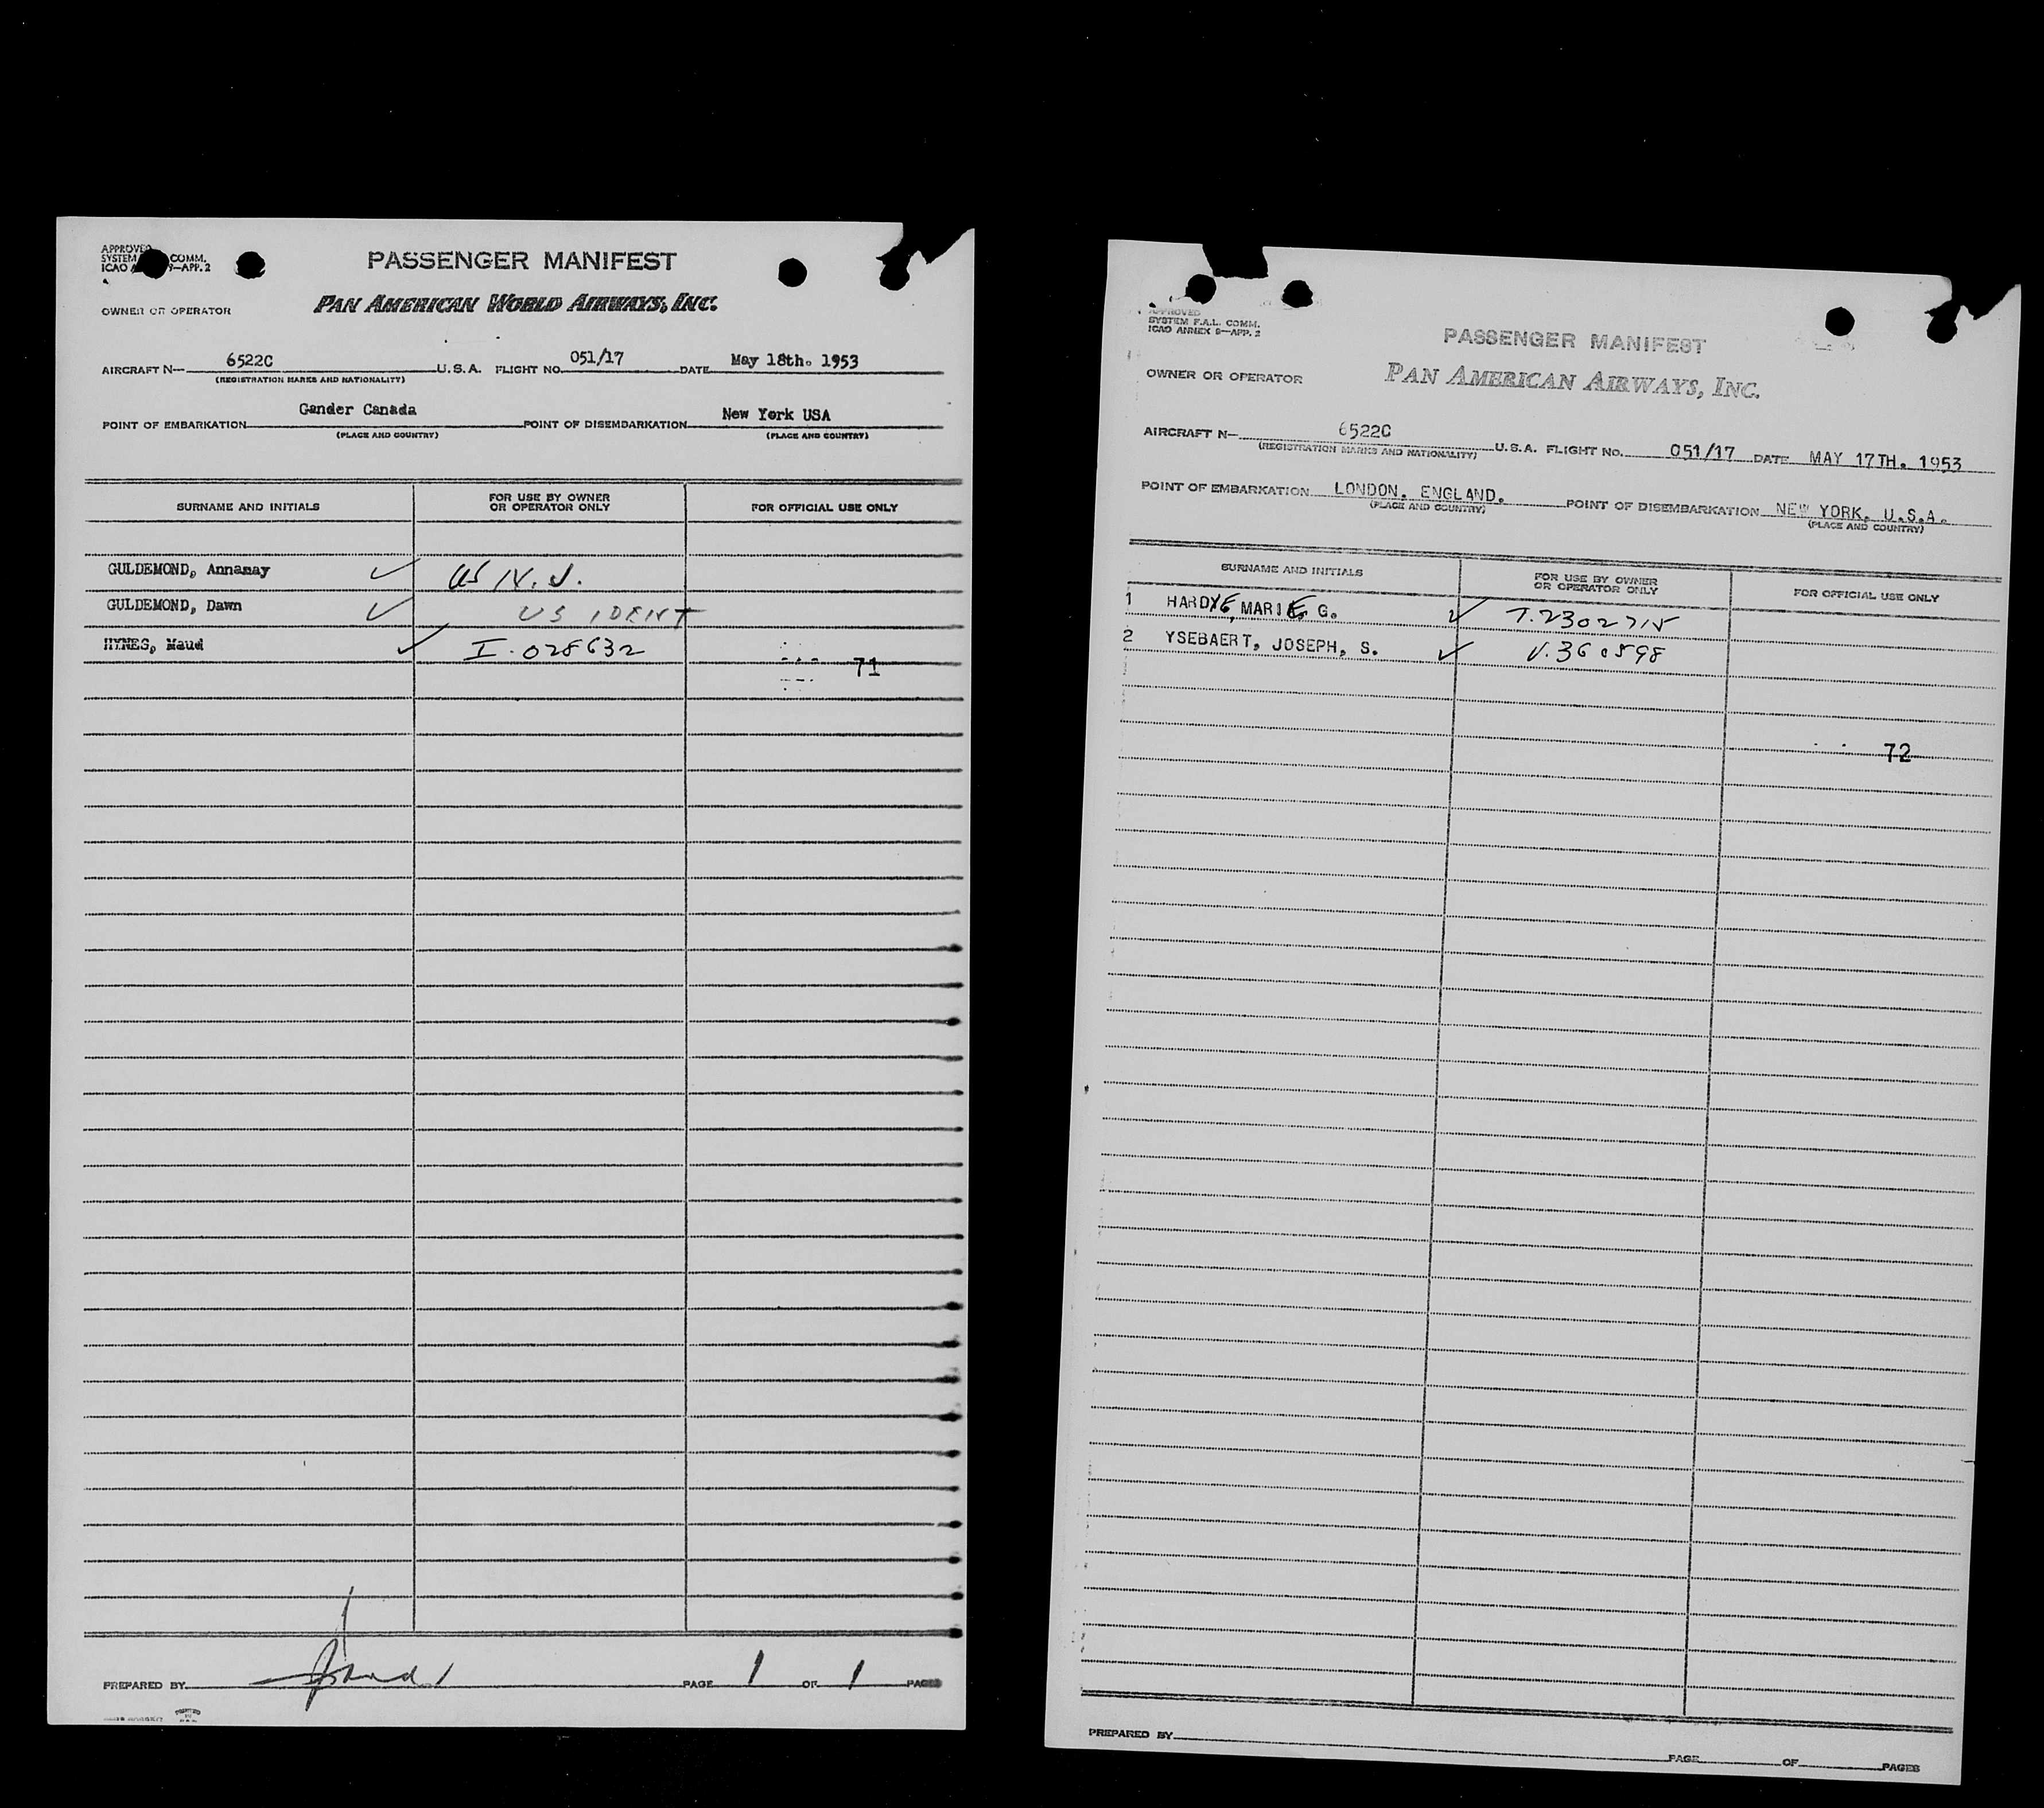 APPROVED
SYSTEM COMM.
ICAO 9—APP. 2
PASSENGER MANIFEST
OWNER OR OPERATOR PAN AMERICAN WORLD AIRWAYS, INC.
AIRCRAFT N— 6522C U.S.A. FLIGHT NO. 051/17 DATE May 18th. 1953
(REGISTRATION MARKS AND NATIONALITY)
POINT OF EMBARKATION Gander Canada POINT OF DISEMBARKATION New York USA
(PLACE AND COUNTRY) (PLACE AND COUNTRY)
SURNAME AND INITIALS FOR USE BY OWNER OR OPERATOR ONLY FOR OFFICIAL USE ONLY
GULDEMOND, Annamay ✓ US N.J.
GULDEMOND, Dawn ✓ US IDENT
HYNES, Maud ✓ I-028632
71
PREPARED BY PAGE 1 OF 1 PAGES
PRINTED IN U.S.A.
APPROVED
SYSTEM F.A.L. COMM.
ICAO ANNEX 9—APP. 2
PASSENGER MANIFEST
OWNER OR OPERATOR PAN AMERICAN AIRWAYS, INC.
AIRCRAFT N— 6522C U.S.A. FLIGHT NO. 051/17 DATE MAY 17TH. 1953
(REGISTRATION MARKS AND NATIONALITY)
POINT OF EMBARKATION LONDON, ENGLAND. POINT OF DISEMBARKATION NEW YORK, U.S.A.
(PLACE AND COUNTRY) (PLACE AND COUNTRY)
SURNAME AND INITIALS FOR USE BY OWNER OR OPERATOR ONLY FOR OFFICIAL USE ONLY
1 HARDYE, MARIE G. ✓ T.2302715
2 YSEBAERT, JOSEPH, S. ✓ V.360598
72
PREPARED BY PAGE OF PAGES